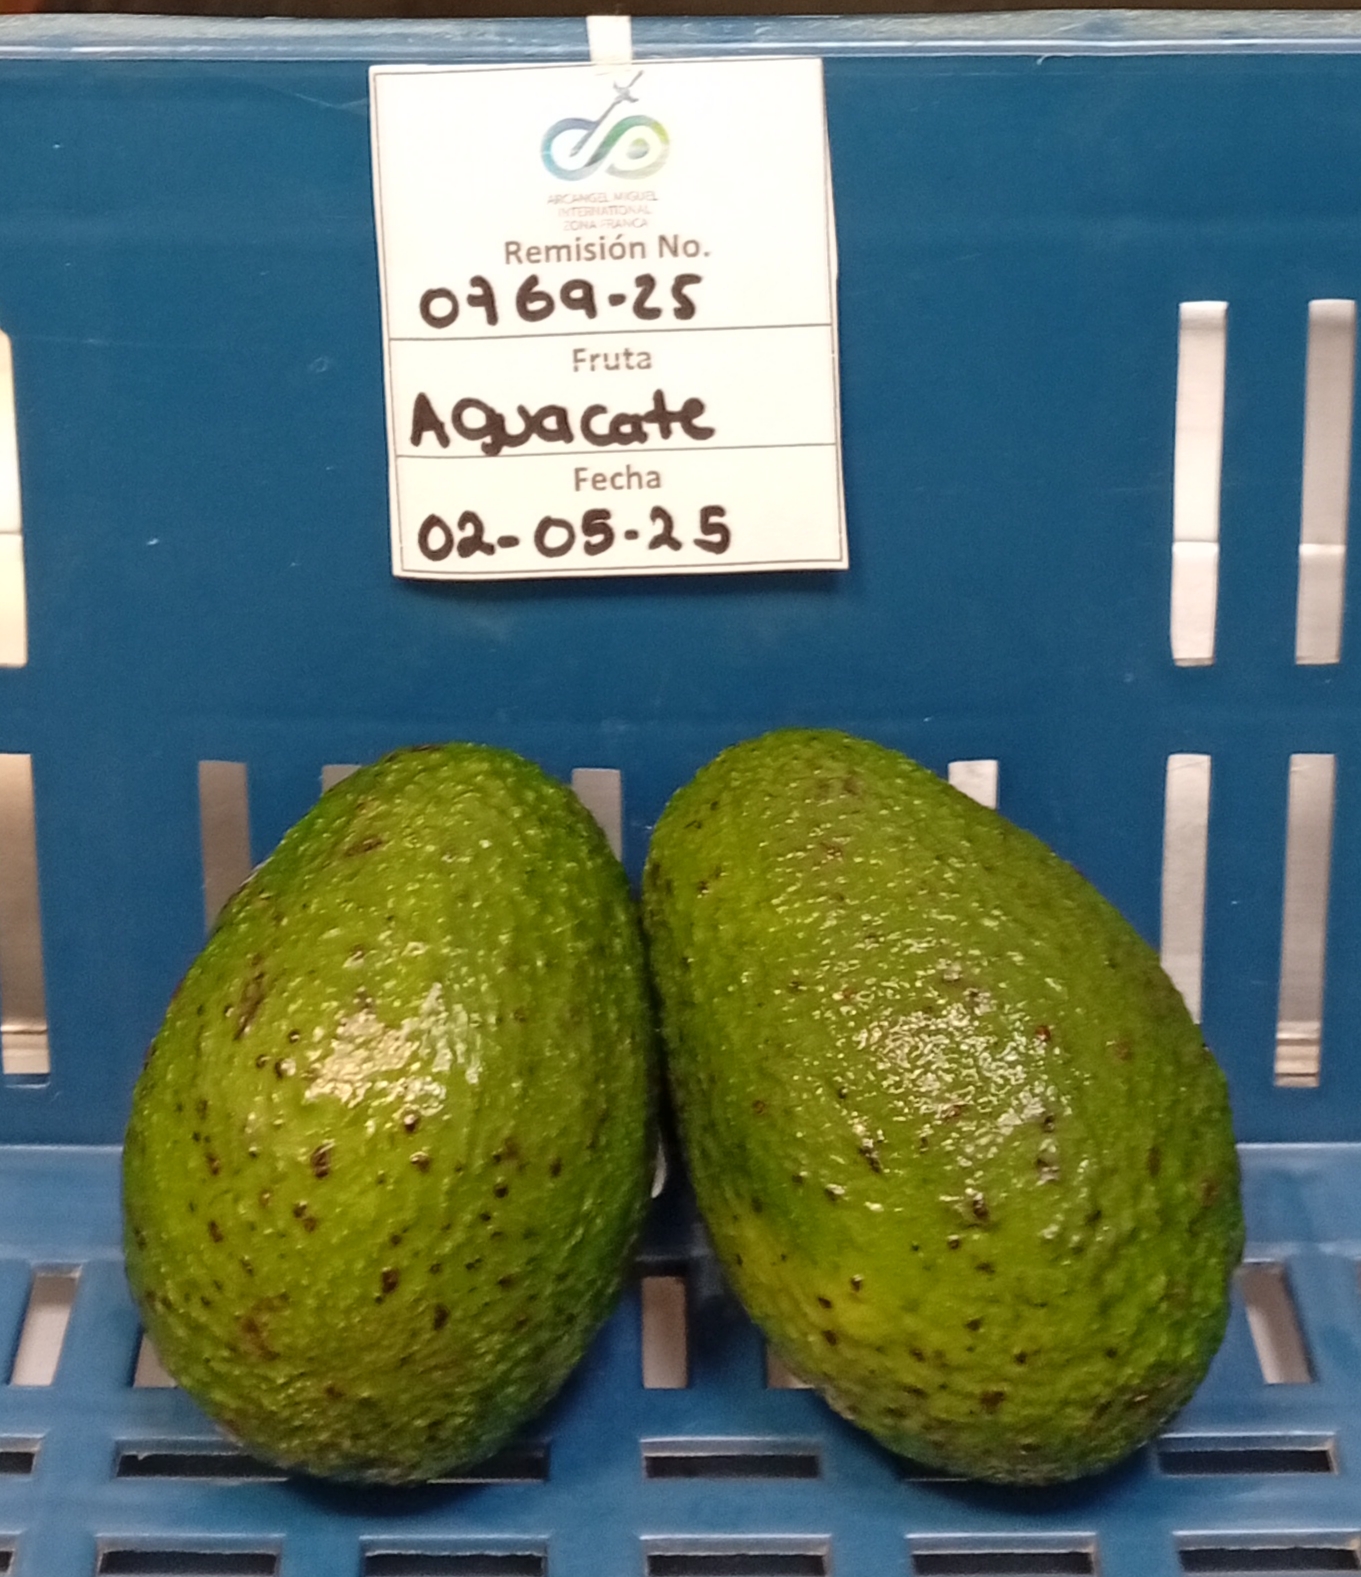 ARCANGEL MIGUEL
INTERNATIONAL
ZONA FRANCA
Remisión No.
0769-25
Fruta
Aguacate
Fecha
02-05-25